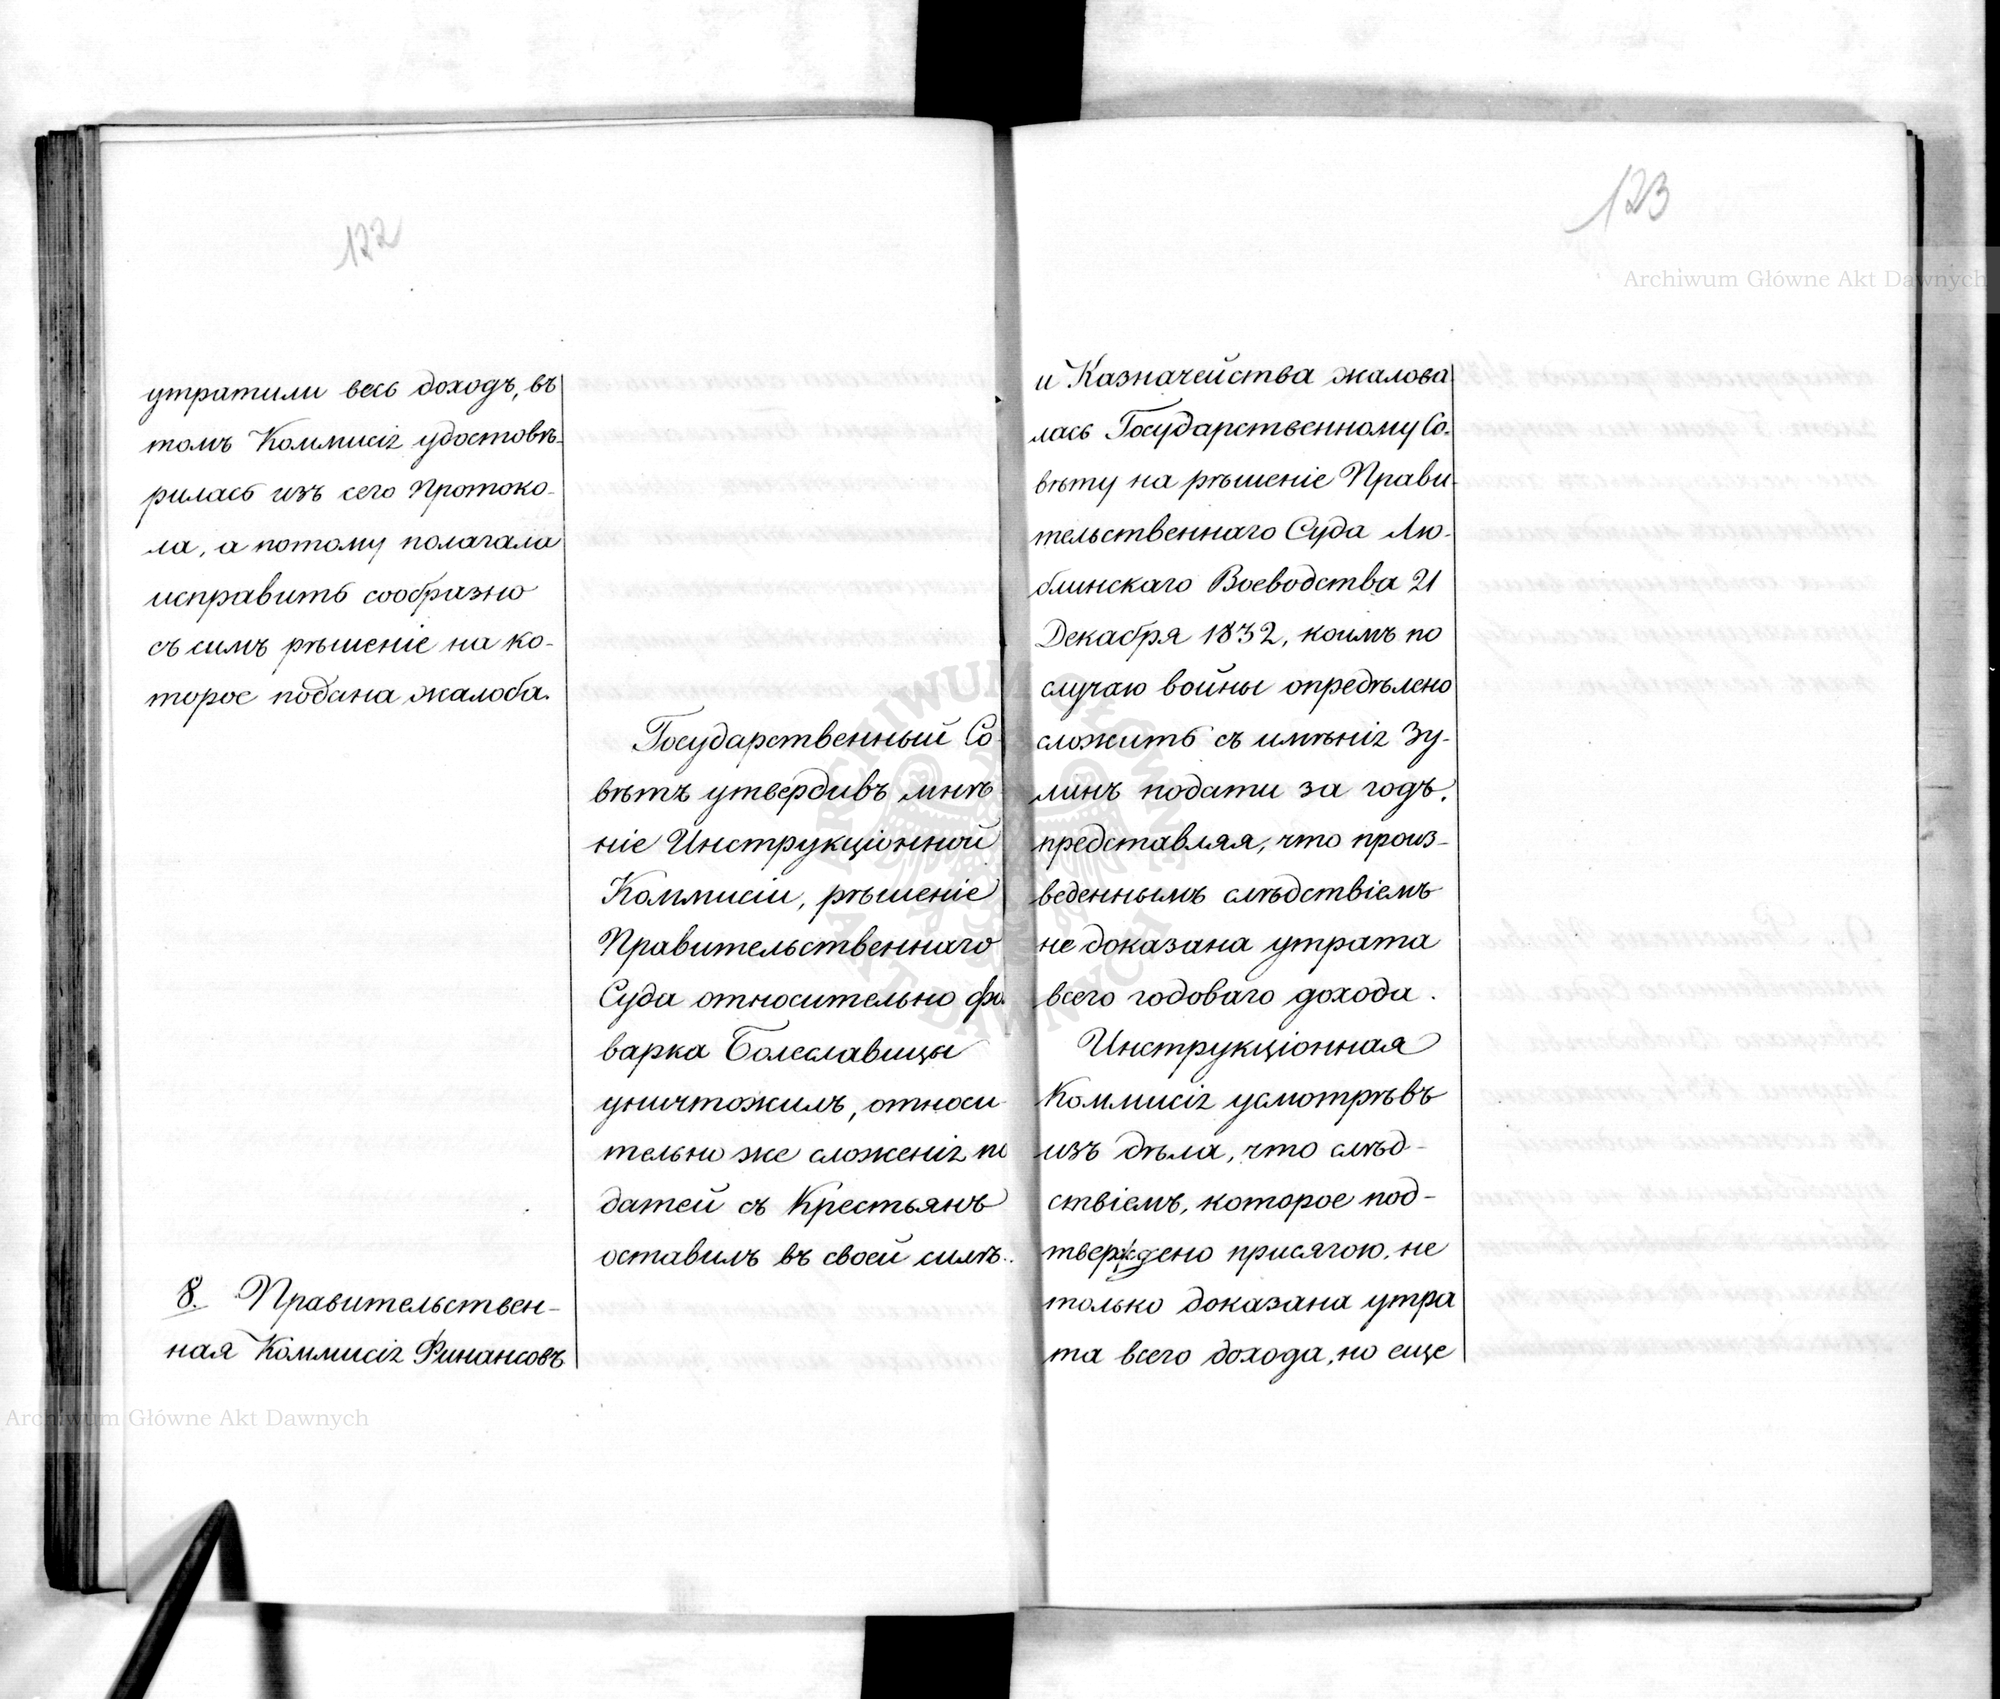 122
утратили весь доходъ, въ
томъ Коммисія удостовѣ-
рилась изъ сего Протоко-
ла, а потому полагала
исправить сообразно
съ симъ рѣшеніе на ко-
торое подана жалоба.
Государственный Со-
вѣтъ утвердивъ мнѣ
ніе Инструкціонной
Коммисіи, рѣшеніе
Правительственнаго
Суда относительно фо
варка Болеславицы
уничтожилъ, относи
тельно же сложенія по
датей съ Крестьянъ
оставилъ въ своей силѣ.
8. Правительствен-
ная Коммисія Финансовъ
123
и Казначейства жалова
лась Государственному Со-
вѣту на рѣшеніе Прави-
тельственнаго Суда Лю-
блинскаго Воеводства 21
Декабря 1832, коимъ по
случаю войны опредѣлено
сложить съ имѣнія Зу-
линъ подати за годъ,
представляя, что произ-
веденнымъ слѣдствіемъ
не доказана утрата
всего годоваго дохода.
Инструкціонная
Коммисія усмотрѣвъ
изъ дѣла, что слѣд-
ствіемъ, которое под-
тверждено присягою, не
только доказана утра
та всего дохода, но еще
Archiwum Główne Akt Dawnych
Archiwum Główne Akt Dawnych
ARCHIWUM GŁÓWNE AKT DAWNYCH